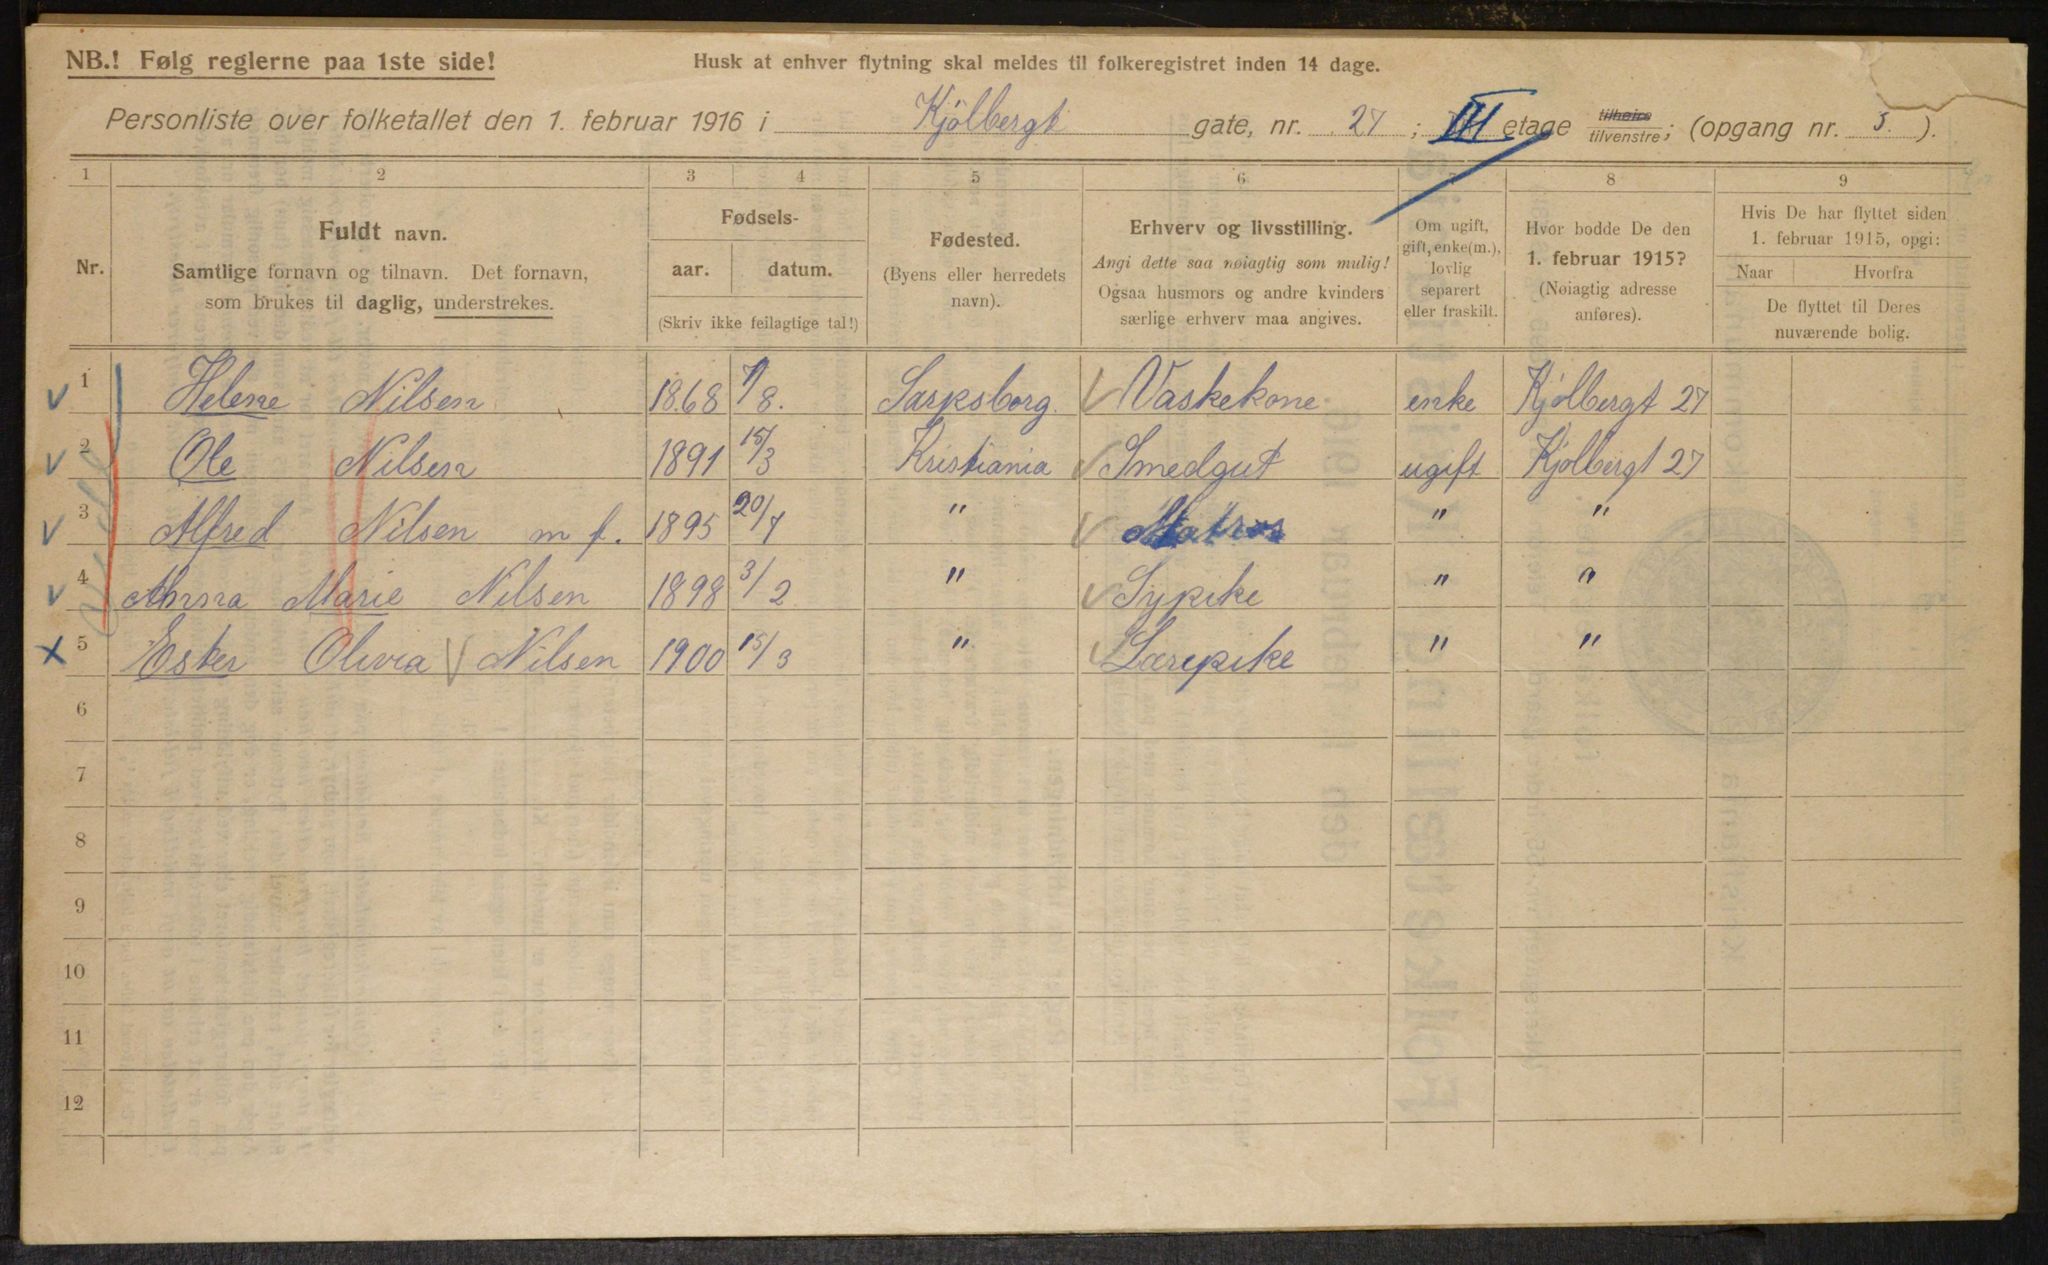 NB.! Følg reglerne paa 1ste side!
Husk at enhver flytning skal meldes til folkeregistret inden 14 dage.
Personliste over folketallet den 1. februar 1916 i Kjölbergt gate, nr. 27; III etage tilhøire tilvenstre; (opgang nr. 3.).
1 2 3 4 5 6 7 8 9
Nr.
Fuldt navn.
Samtlige fornavn og tilnavn. Det fornavn,
som brukes til daglig, understrekes.
Fødsels-
aar. datum.
(Skriv ikke feilagtige tal!)
Fødested.
(Byens eller herredets
navn).
Erhverv og livsstilling.
Angi dette saa nøiagtig som mulig!
Ogsaa husmors og andre kvinders
særlige erhverv maa angives.
Om ugift,
gift, enke(m.),
lovlig
separert
eller fraskilt.
Hvor bodde De den
1. februar 1915?
(Nøiagtig adresse
anføres).
Hvis De har flyttet siden
1. februar 1915, opgi:
Naar Hvorfra
De flyttet til Deres
nuværende bolig.
1 Helene Nilsen 1868 7/8. Sarpsborg. Vaskekone. enke Kjölbergt 27
2 Ole Nilsen 1891 15/3 Kristiania Smedgut ugift Kjölbergt 27
3 Alfred Nilsen m f. 1895 20/7 " Matros " "
4 Anna Marie Nilsen 1898 3/2 " Sypike " "
5 Ester Olivia Nilsen 1900 15/3 " Lærepike " "
6
7
8
9
10
11
12